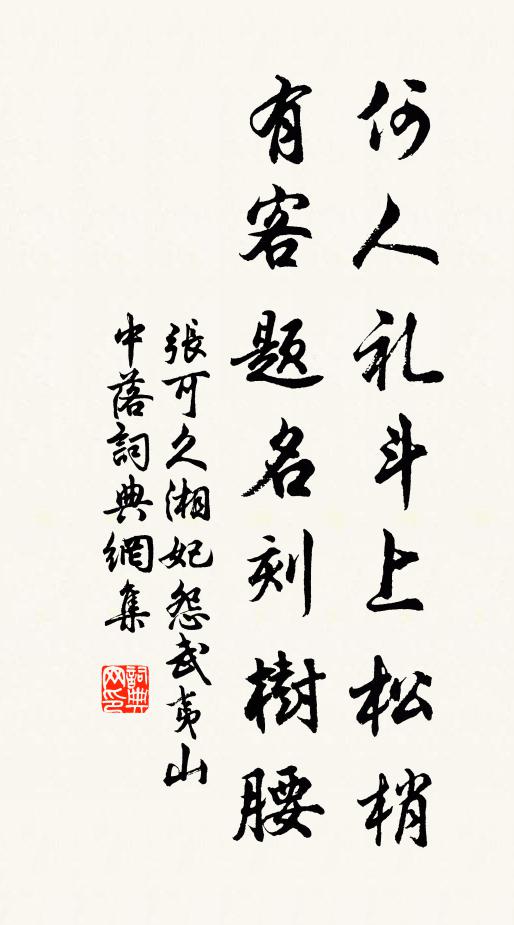 何人礼斗上松梢
有客题名刻樹腰
張可久湘妃怨武夷山
中落詞典網集
詞典网印